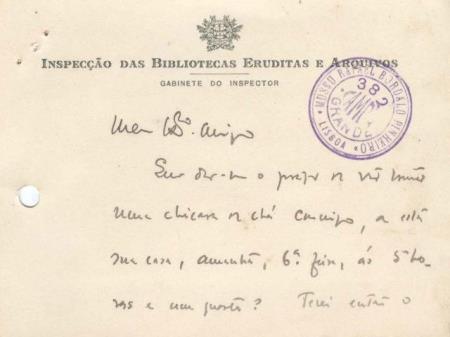 INSPECÇÃO DAS BIBLIOTECAS ERUDITAS E ARQUIVOS
GABINETE DO INSPECTOR
MUSEU RAFAEL BORDALO PINHEIRO
LISBOA
382
GRANDE
Meu Amigo
Quer dar-me o prazer de vir tomar
uma chicara de chá comigo, a esta
sua casa, amanhã, 6ª feira, ás 5 ho-
ras e um quarto? Terei então o